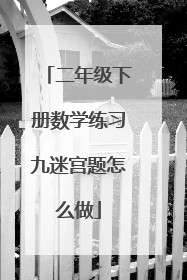 「二年级下
册数学练习
九迷宫题怎
么做」